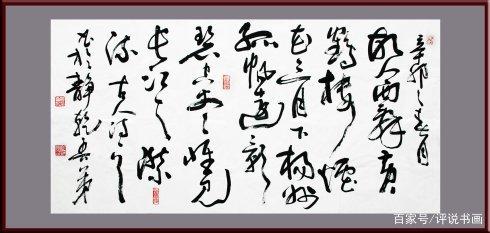 辛卯之春月
故人西辞黄
鹤楼烟
花三月下扬州
孤帆远影
碧空尽惟见
长江天际
流 古人诗
书于静
百家号/评说书画